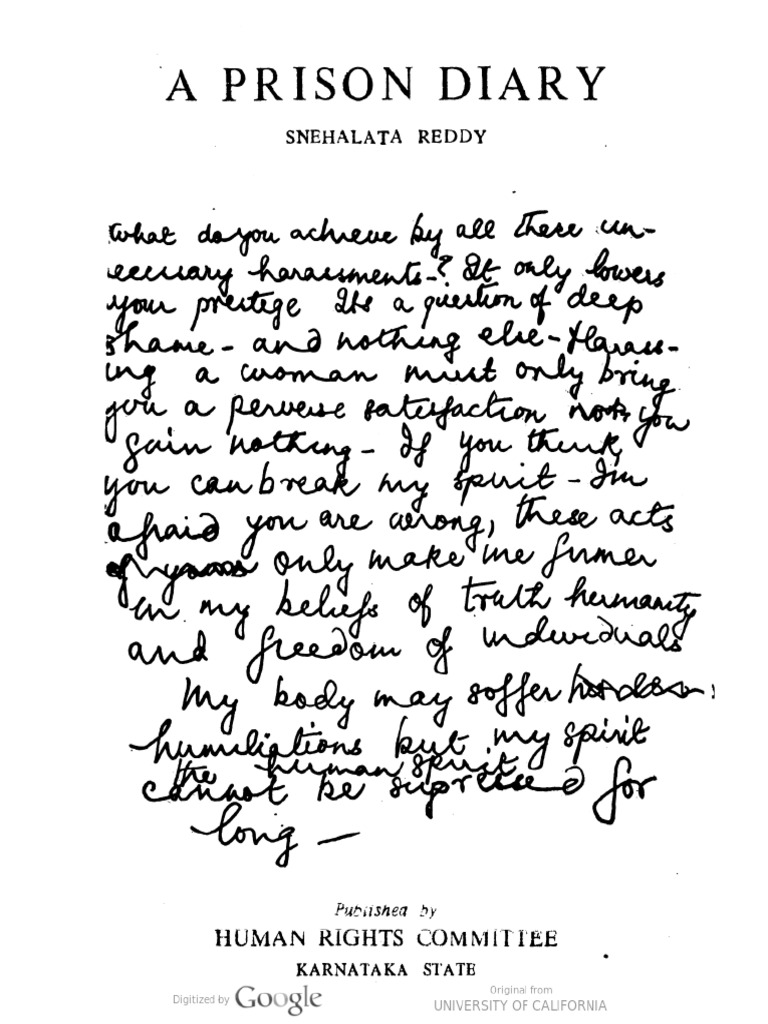 A PRISON DIARY
SNEHALATA REDDY
What do you achieve by all these un-
necessary harassments-? It only lowers
your prestige Its a question of deep
shame - and nothing else - Harass-
ing a woman must only bring
you a perverse satisfaction you
gain nothing - If you think,
you can break my spirit - I'm
afraid you are wrong, these acts
only make me firmer
in my beliefs of truth humanity
and freedom of individuals
My body may suffer
humiliations but my spirit
the human spirit
cannot be supressed for
long —
Published by
HUMAN RIGHTS COMMITTEE
KARNATAKA STATE
Digitized by Google
Original from
UNIVERSITY OF CALIFORNIA